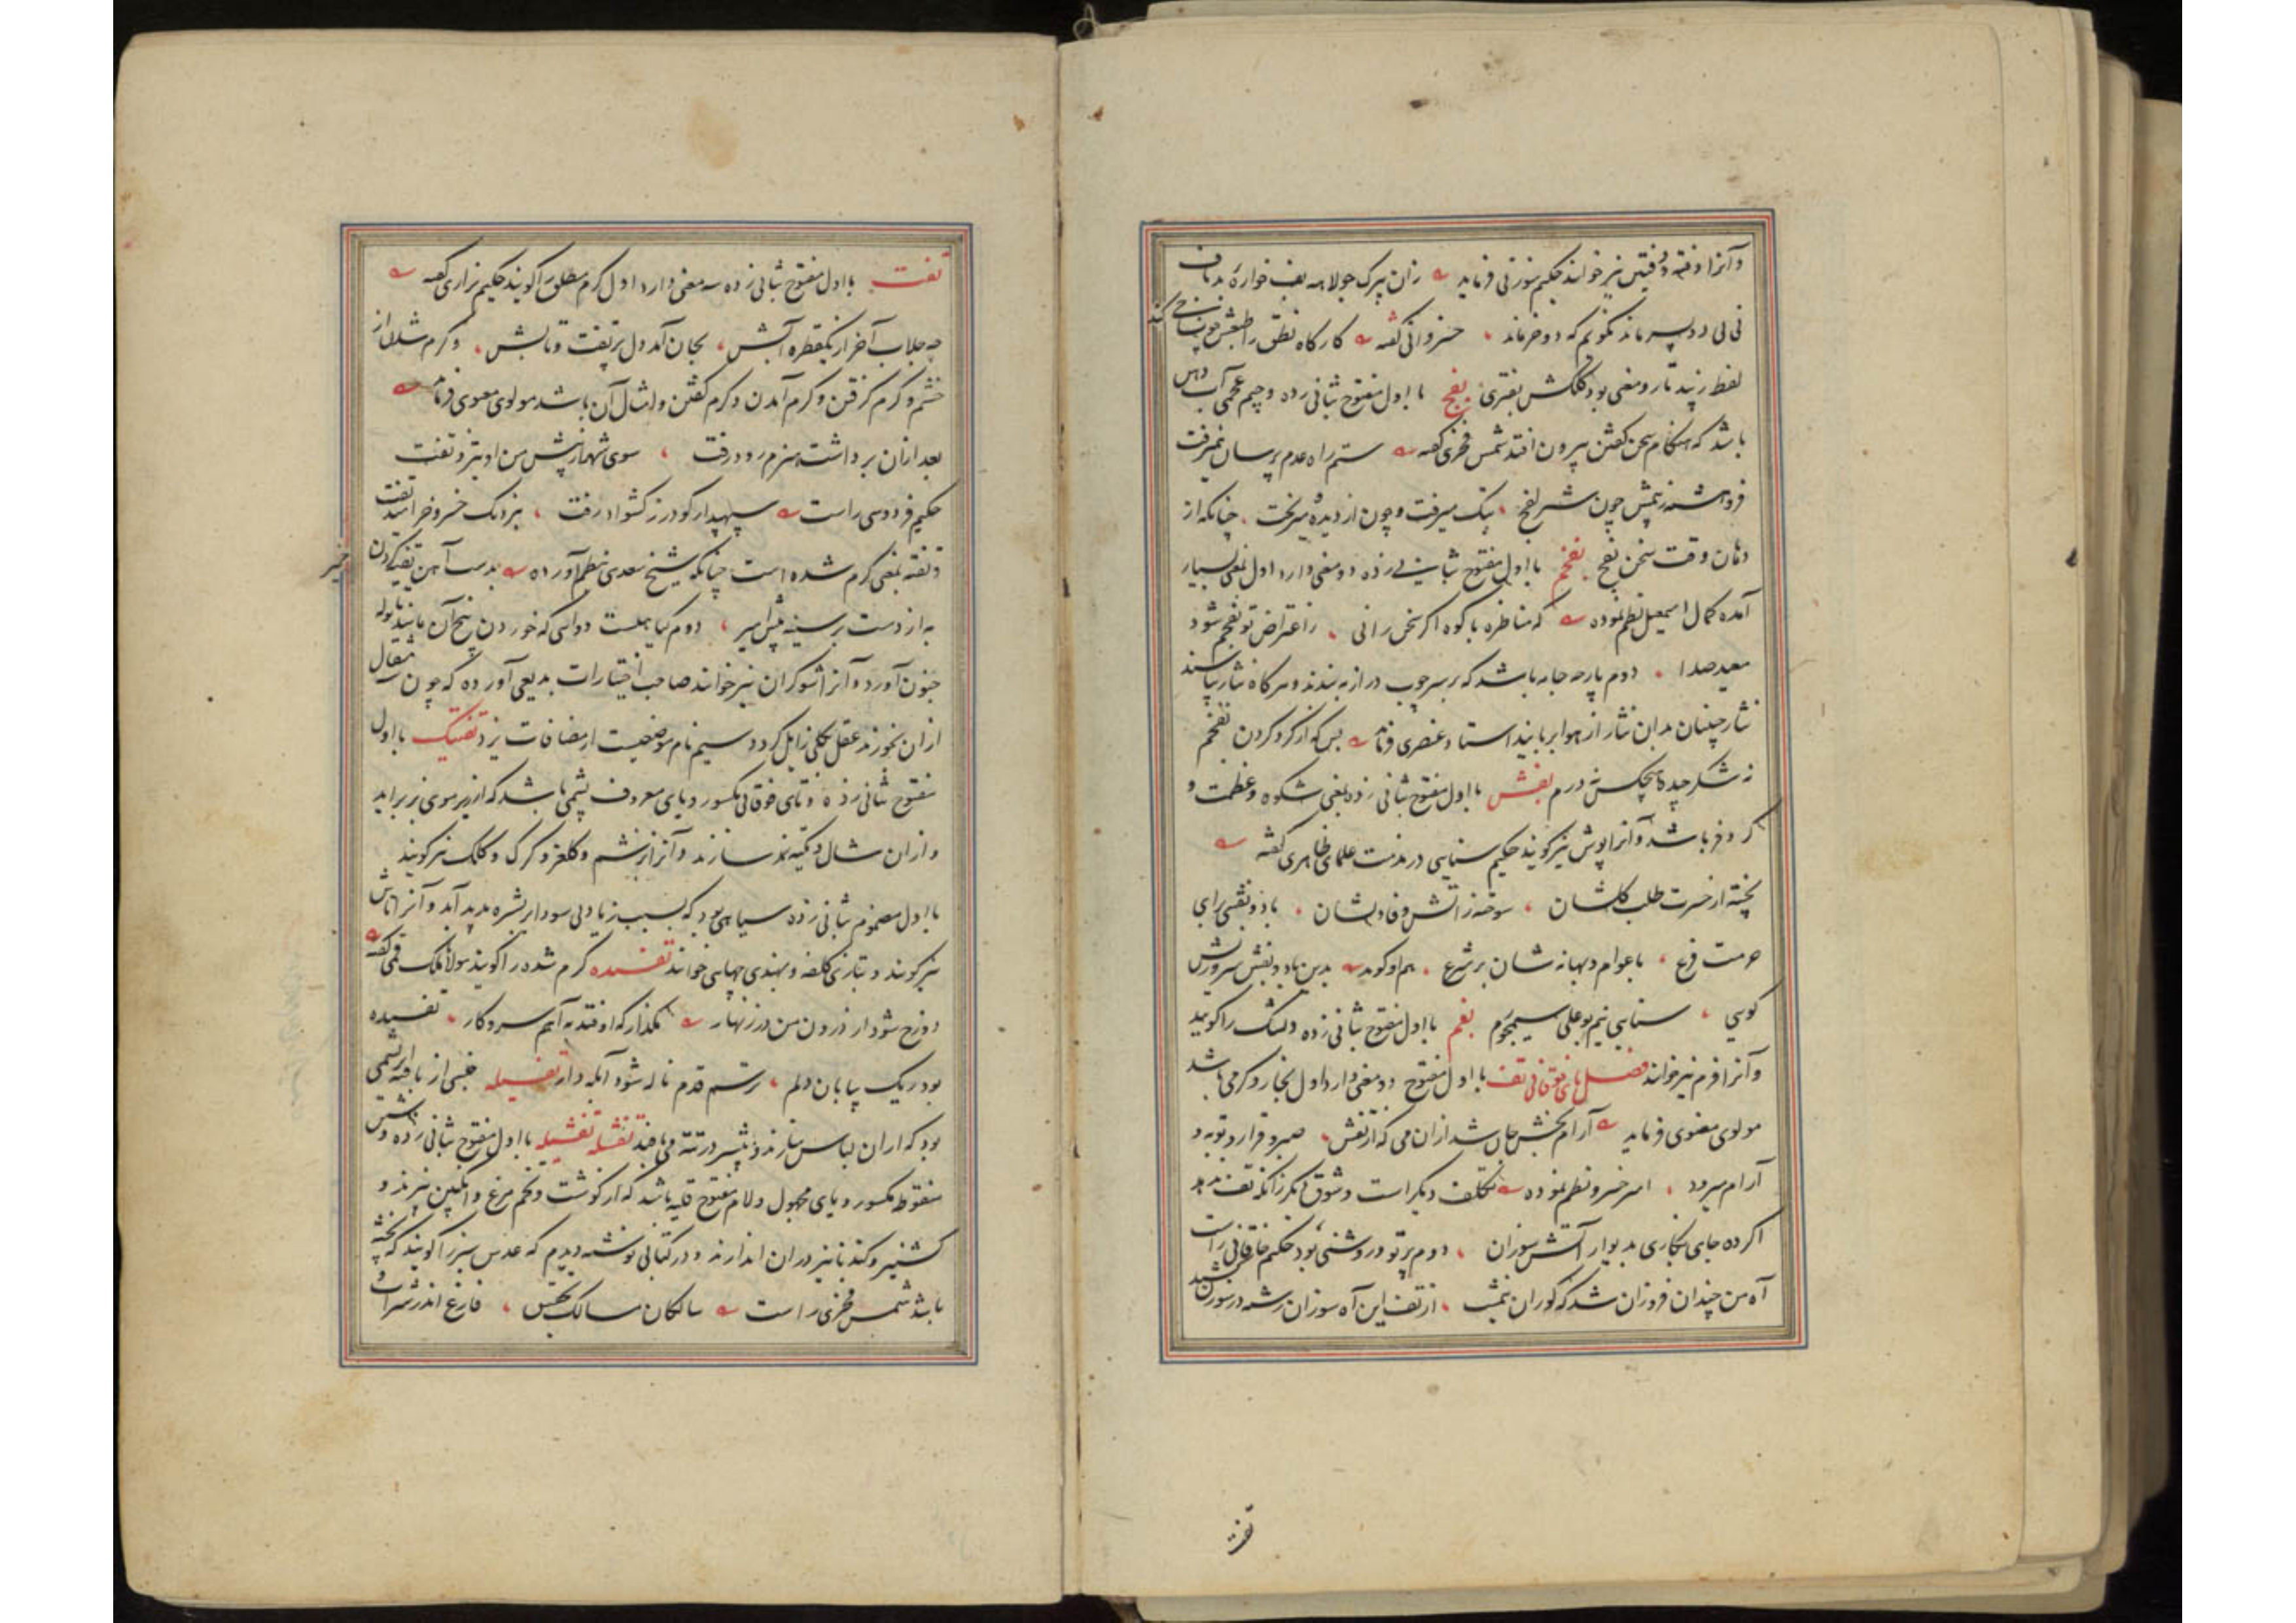 وآنرا وفته و دفتین نیز خوانند حکیم سوزنی فرماید زان پیرک جولاهه بف خواره بدباف
نی نی دو پسر ماند نگویم که دو خر ماند خسروانی گفته کارکاه نطق را طبعش چو نساجی کند
لفظ زیبد تار و معنی بود کلکش بفتری بفج با اول مفتوح بثانی زده و جیم عجمی آب دهن
باشد که هنگام سخن گفتن بیرون افتد شمس فخری گفته ستم راه عدم پرسان نمیرفت
فروهشته ز بیمش چون شتر لفج بتک میرفت و خون از دیده میریخت چنانکه از
دهان وقت سخن بفج بفخم با اول مفتوح بثانی زده دو معنی دارد اول بمعنی بسیار
آمده کمال اسمعیل نظم نموده که مناظره با کوه اگر سخن رانی ز اعتراض تو بفخم شود
معید صدا دوم پارچه جامه باشد که بر سر چوب دراز به بندند و هرکاه نثار پاشند
نثار چینان بدان نثار از هوا بربایند استاد عنصری فرماید بس که از گرد کردن بفخم
نه شکر چیده هیچکس نه درم بفش با اول مفتوح بثانی زده بمعنی شکوه و عظمت و
کر و فر باشد و آنرا پوش نیز گویند حکیم سنایی در مذمت علمای ظاهری گفته
پخته از حسرت طلب کلشان سوخته ز آتش وفا دلشان باد و بفشی برای
حرمت فرع با عوام و بهانه شان بر شرع هم او گوید بدین باد و بفش و سر و ریش
گویی سنایی نیم بوعلی سیمجورم بفم با اول مفتوح بثانی زده دلتنگ را گویند
و آنرا فرم نیز خوانند فصل تای فوقانی تف با اول مفتوح دو معنی دارد اول بخار و گرمی باشد
مولوی معنوی فرماید آرام بخش جان شد ازان می که از تفش صبر و قرار و توبه و
آرام میرود امیر خسرو نظم نموده تکلف دیگر است و شوق دیگر زانکه تف ندهد
اگر ده جای بنگاری بدیوار آتش سوزان دوم پرتو و روشنی بود حکیم خاقانی راست
آه من چندان فروزان شد که کوران نیمشب از تف این آه سوزان رشته در سوزن کشید
تفت
تفت با اول مفتوح بثانی زده سه معنی دارد اول گرم مطلق را گویند حکیم نزاری گفته
چه جلاب آخر از یکقطره آبش بجان آمد دل پر تفت و تابش و گرم شدن از
خشم و گرم گرفتن و گرم آمدن و گرم گفتن و امثال آن باشد مولوی معنوی فرماید
بعد ازان برداشت هیزم رو و رفت سوی شهر از پیش من او تیز و تفت
حکیم فردوسی راست سپهدار گودرز کشواد رفت بنزدیک خسرو خرامید تفت
و تفته بمعنی گرم شده است چنانکه شیخ سعدی بنظم آورده بدست آهن تفته کردن خمیر
به از دست بر سینه پیش امیر دوم گیاهیست دوایی که خوردن بیخ آن مانند تاتوله
جنون آورد و آنرا شوکران نیز خوانند صاحب اختیارات بدیعی آورده که چون مثقال
ازان بخورند عقل بکلی زایل گردد سیم نام موضعیست از مضافات یزد تفتیک با اول
مفتوح بثانی زده و تای فوقانی مکسور و یای معروف پشمی باشد که از زیر موی بز براید
و ازان شال و تکیه نمد سازند و آنرا بزشم و کلغر و کرک و کلک نیز گویند
با اول مضموم بثانی زده سیاهی بود که بسبب زیادتی سودا بر بشره پدید آید و آنرا تاش
نیز گویند و بتازی کلفه و بهندی چهایی خوانند تفسیده گرم شده را گویند مولانا ملک قمی گفته
دوزخ شود ار درون من در زنهار مگذار که اوفتد به آتشم سر و کار تفسیده
بود ریک بیابان دلم رستم قدم ناله شود آبله دار تفسیله جنسی از بافته ابریشمی
بود که ازان لباس سازند و بیشتر در تته می بافند تفشله تفشیله با اول مفتوح بثانی زده و شین
منقوطه مکسور و یای مجهول و لام مفتوح قلیه باشد که از گوشت و تخم مرغ و انگبین پزند و
گشنیز و گندنا نیز دران اندازند و در کتابی نوشته دیدم که عدس سبز را گویند که پخته
باشد شمس فخری راست سالکان مسالک تجنیس فارغ اند از شراب و